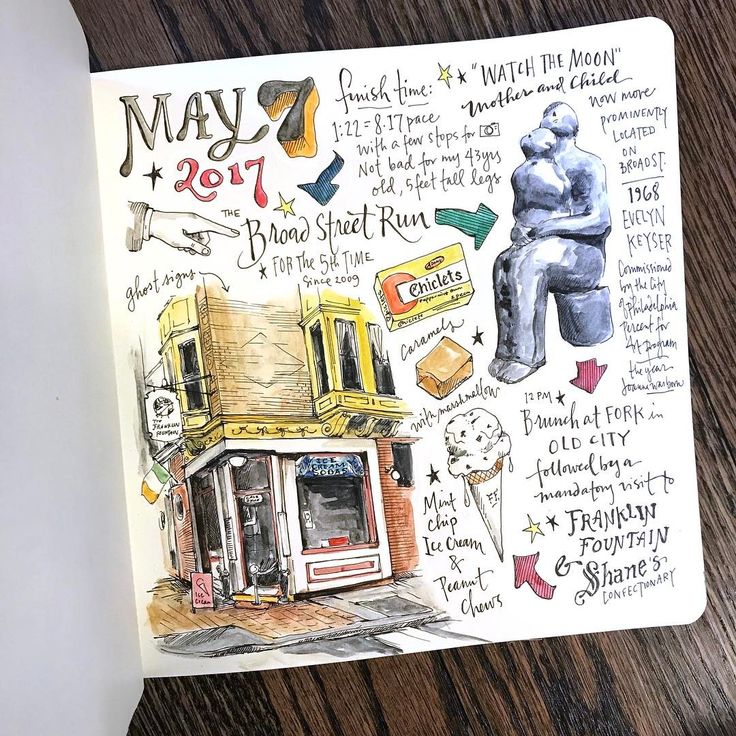 MAY 7
2017
THE
Broad Street Run
FOR THE 5th TIME
Since 2009
finish time:
1:22 = 8:17 pace
with a few stops for
Not bad for my 43 yrs
old, 5 feet tall legs
"WATCH THE MOON"
Mother and Child
NOW MORE
PROMINENTLY
LOCATED
ON
BROAD ST.
1968
EVELYN
KEYSER
Commissioned
by the City
of Philadelphia
Percent for
Art Program
the year
Joanne was born
ghost signs
Chiclets
Peppermint Gum
Chiclets
Caramels
with marshmallow
THE
FRANKLIN
FOUNTAIN
ICE
CREAM
SODAS
ICE
CREAM
F.F.
Mint
Chip
Ice Cream
&
Peanut
Chews
12 PM
Brunch at FORK in
OLD CITY
followed by a
mandatory visit to
FRANKLIN
FOUNTAIN
& Shane's
CONFECTIONARY